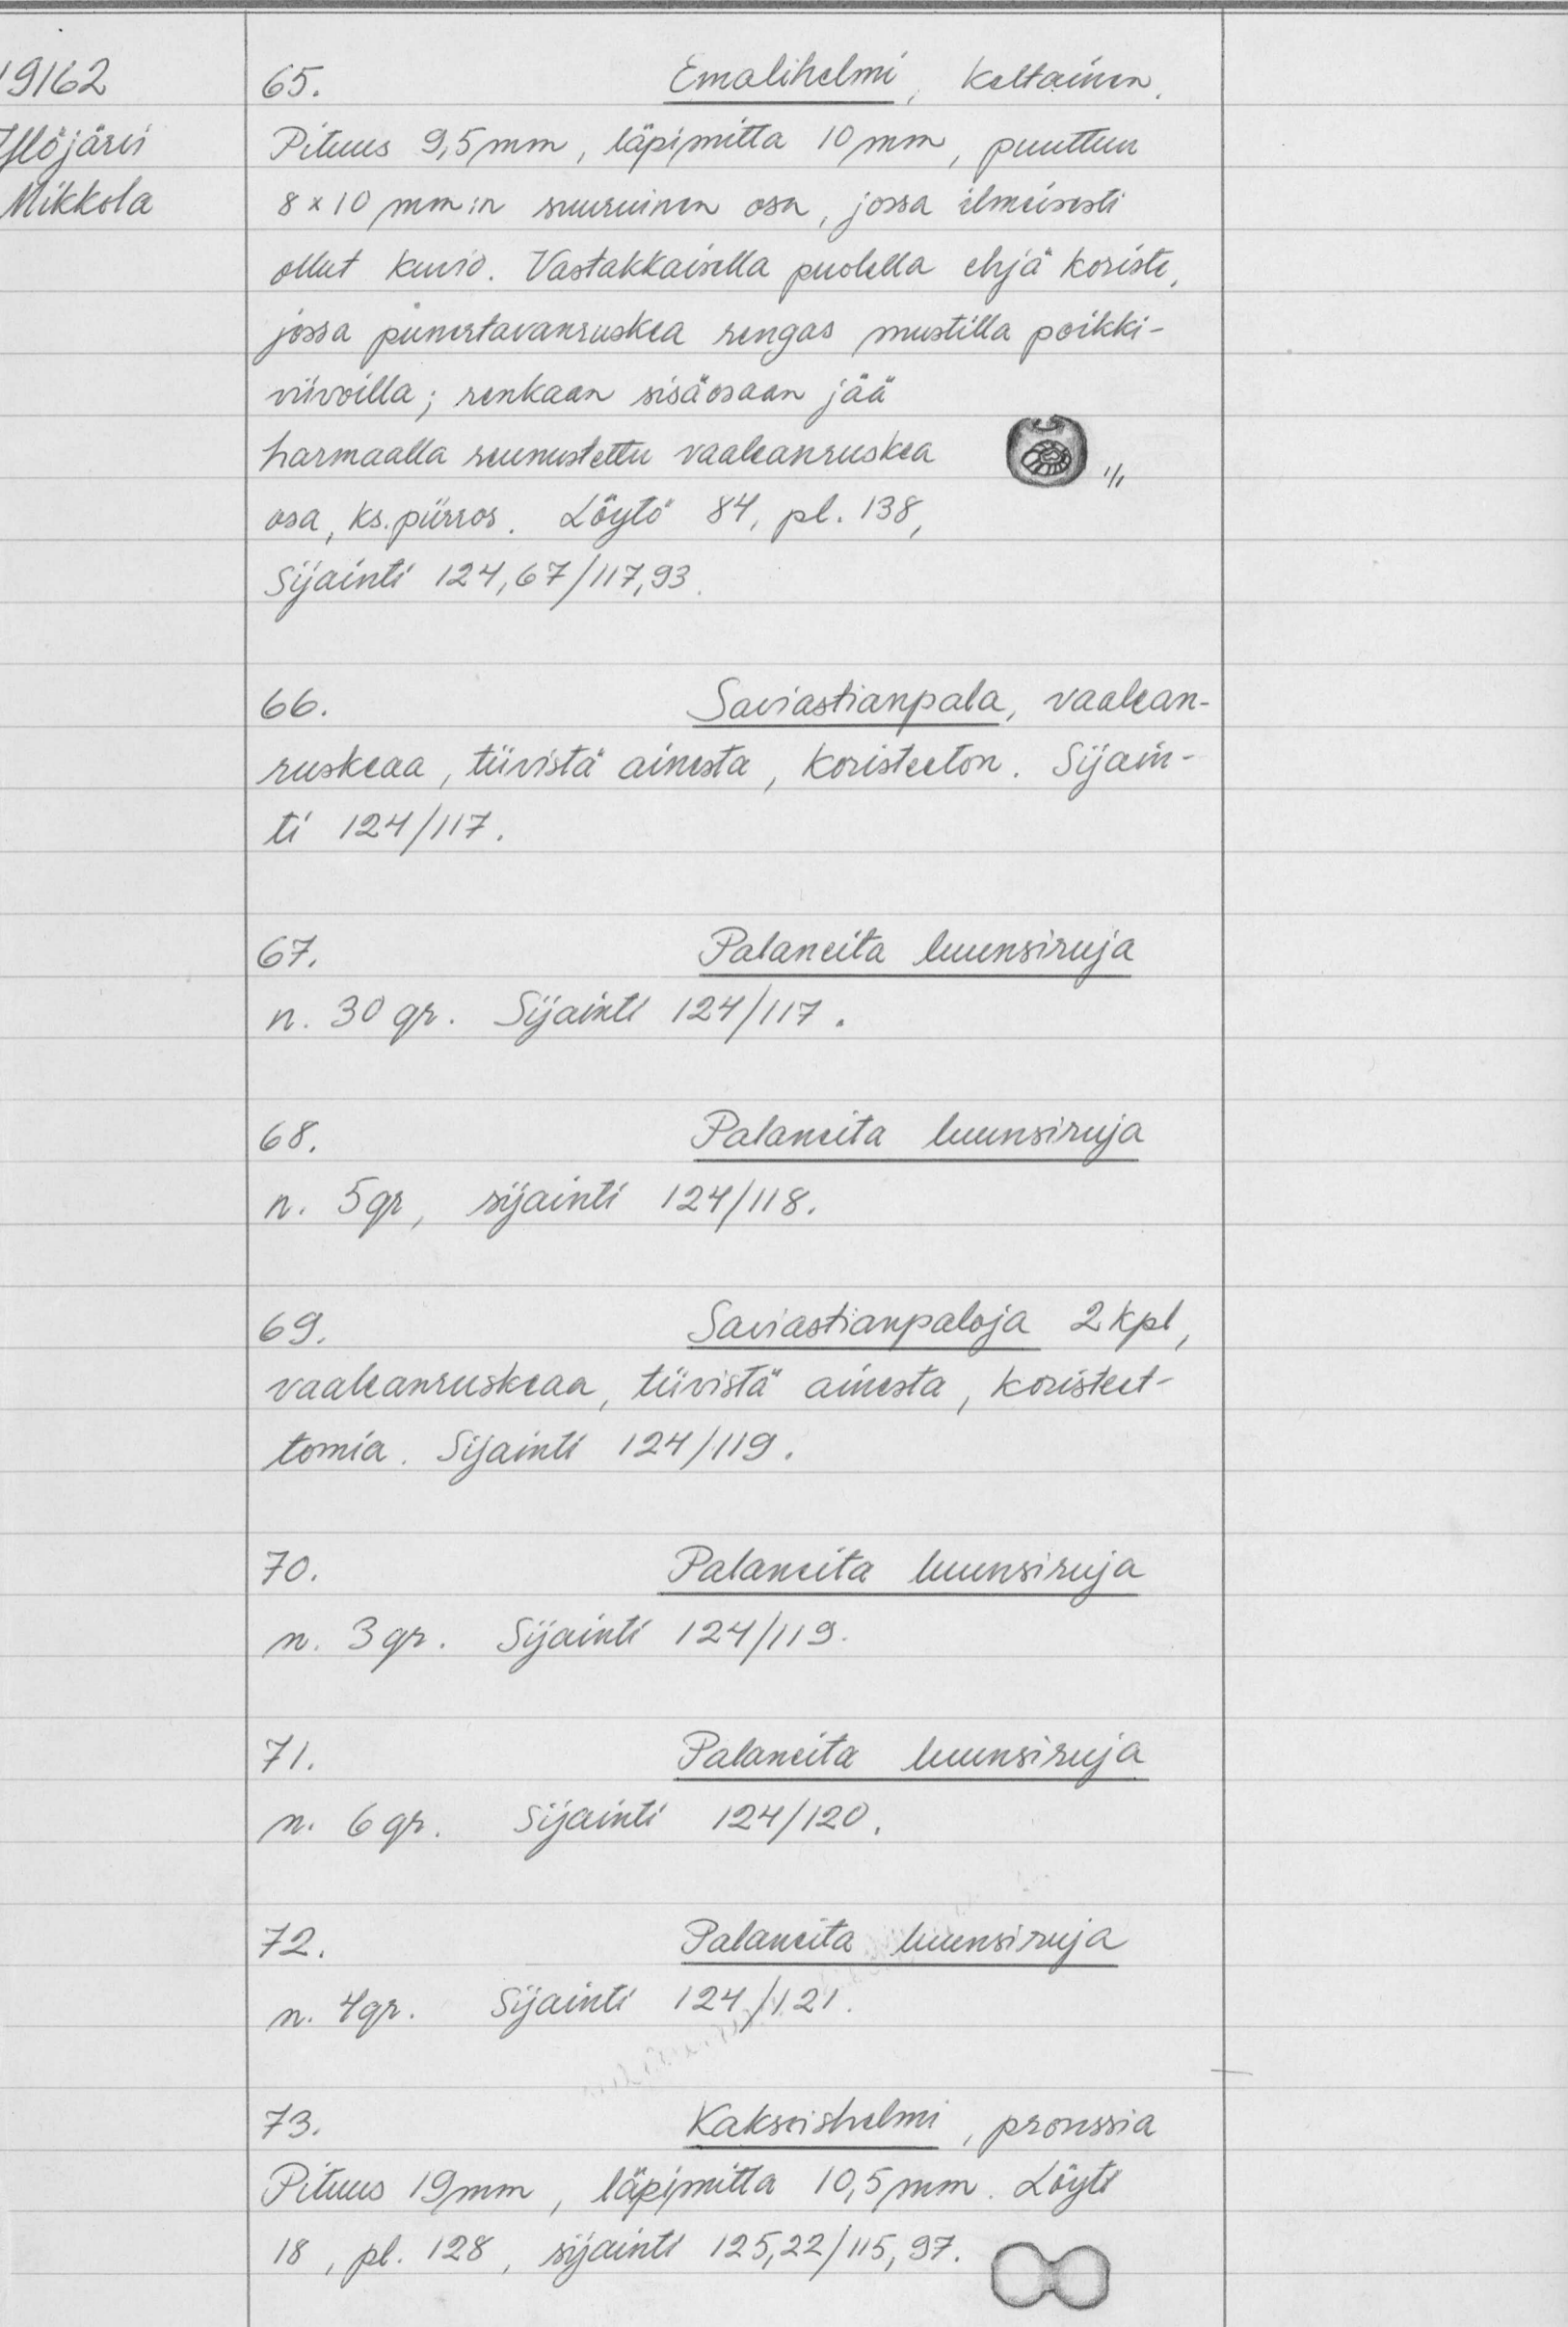 19162
Ylöjärvi
Mikkola
65. Emalihelmi, keltainen.
Pituus 9,5 mm, läpimitta 10 mm, puuttuu
8 x 10 mm:n suuruinen osa, jossa ilmeisesti
ollut kuvio. Vastakkaisella puolella ehjä koriste,
jossa punertavanruskea rengas mustilla poikki-
viivoilla; renkaan sisäosaan jää
harmaalla reunustettu vaaleanruskea
1/1
osa, ks. piirros. Löytö 84, pl. 138,
Sijainti 124,67/117,93.
66. Saviastianpala, vaalean-
ruskeaa, tiivistä ainesta, koristeeton. Sijain-
ti 124/117.
67. Palaneita luunsiruja
n. 30 gr. Sijainti 124/117.
68. Palaneita luunsiruja
n. 5 gr, sijainti 124/118.
69. Saviastianpaloja 2 kpl,
vaaleanruskeaa, tiivistä ainesta, koristeet-
tomia. Sijainti 124/119.
70. Palaneita luunsiruja
n. 3 gr. Sijainti 124/119.
71. Palaneita luunsiruja
n. 6 gr. Sijainti 124/120.
72. Palaneita luunsiruja
n. 4 gr. Sijainti 124/121.
73. Kaksoishelmi, pronssia
Pituus 19 mm, läpimitta 10,5 mm. Löytö
18, pl. 128, sijainti 125,22/115,97.